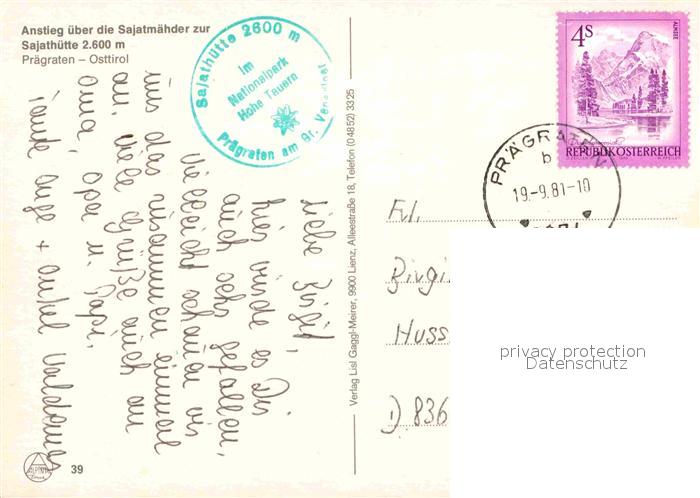 Anstieg über die Sajatmähder zur
Sajathütte 2.600 m
Prägraten – Osttirol
Sajathütte 2600 m
im
Nationalpark
Hohe Tauern
Prägraten am Gr. Venediger
Liebe Birgit,
hier würde es Dir
auch sehr gefallen,
vielleicht schauen wir
uns das zusammen einmal
an, viele Grüße auch an
Oma, Opa u. Papi.
Tante Inge + Onkel
Verlag Lisl Gaggl-Meirer, 9900 Lienz, Alleestraße 18, Telefon (04852) 3325
4S
ALMSEE
REPUBLIK ÖSTERREICH
PRÄGRATEN
b
19.-9.81-10
Frl.
Birgi
Huss
D 836
privacy protection
Datenschutz
ALPINA
39